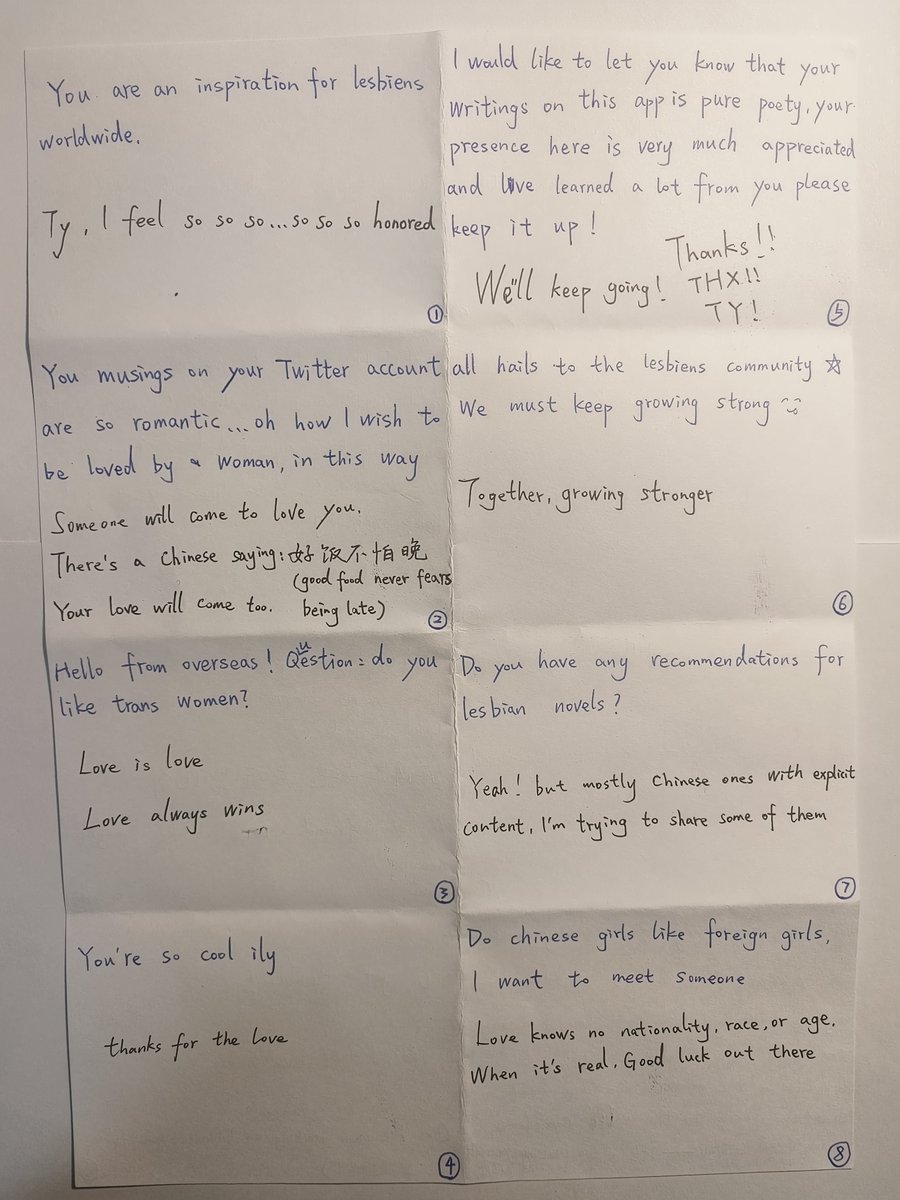 You are an inspiration for lesbiens
worldwide.
Ty, I feel so so so...so so so honored
①
You musings on your Twitter account
are so romantic...oh how I wish to
be loved by a woman, in this way
Someone will come to love you.
There's a Chinese saying:好饭不怕晚
(good food never fears
Your love will come too. being late)
②
Hello from overseas! Question: do you
like trans women?
Love is love
Love always wins
③
You're so cool ily
thanks for the love
④
I would like to let you know that your
writings on this app is pure poety, your
presence here is very much appreciated
and I've learned a lot from you please
keep it up!
Thanks!!
We'll keep going! THX!!
TY!
⑤
all hails to the lesbiens community ☆
We must keep growing strong
Together, growing stronger
⑥
Do you have any recommendations for
lesbian novels?
Yeah! but mostly Chinese ones with explicit
content, I'm trying to share some of them
⑦
Do chinese girls like foreign girls,
I want to meet someone
Love knows no nationality, race, or age.
When it's real. Good luck out there
⑧